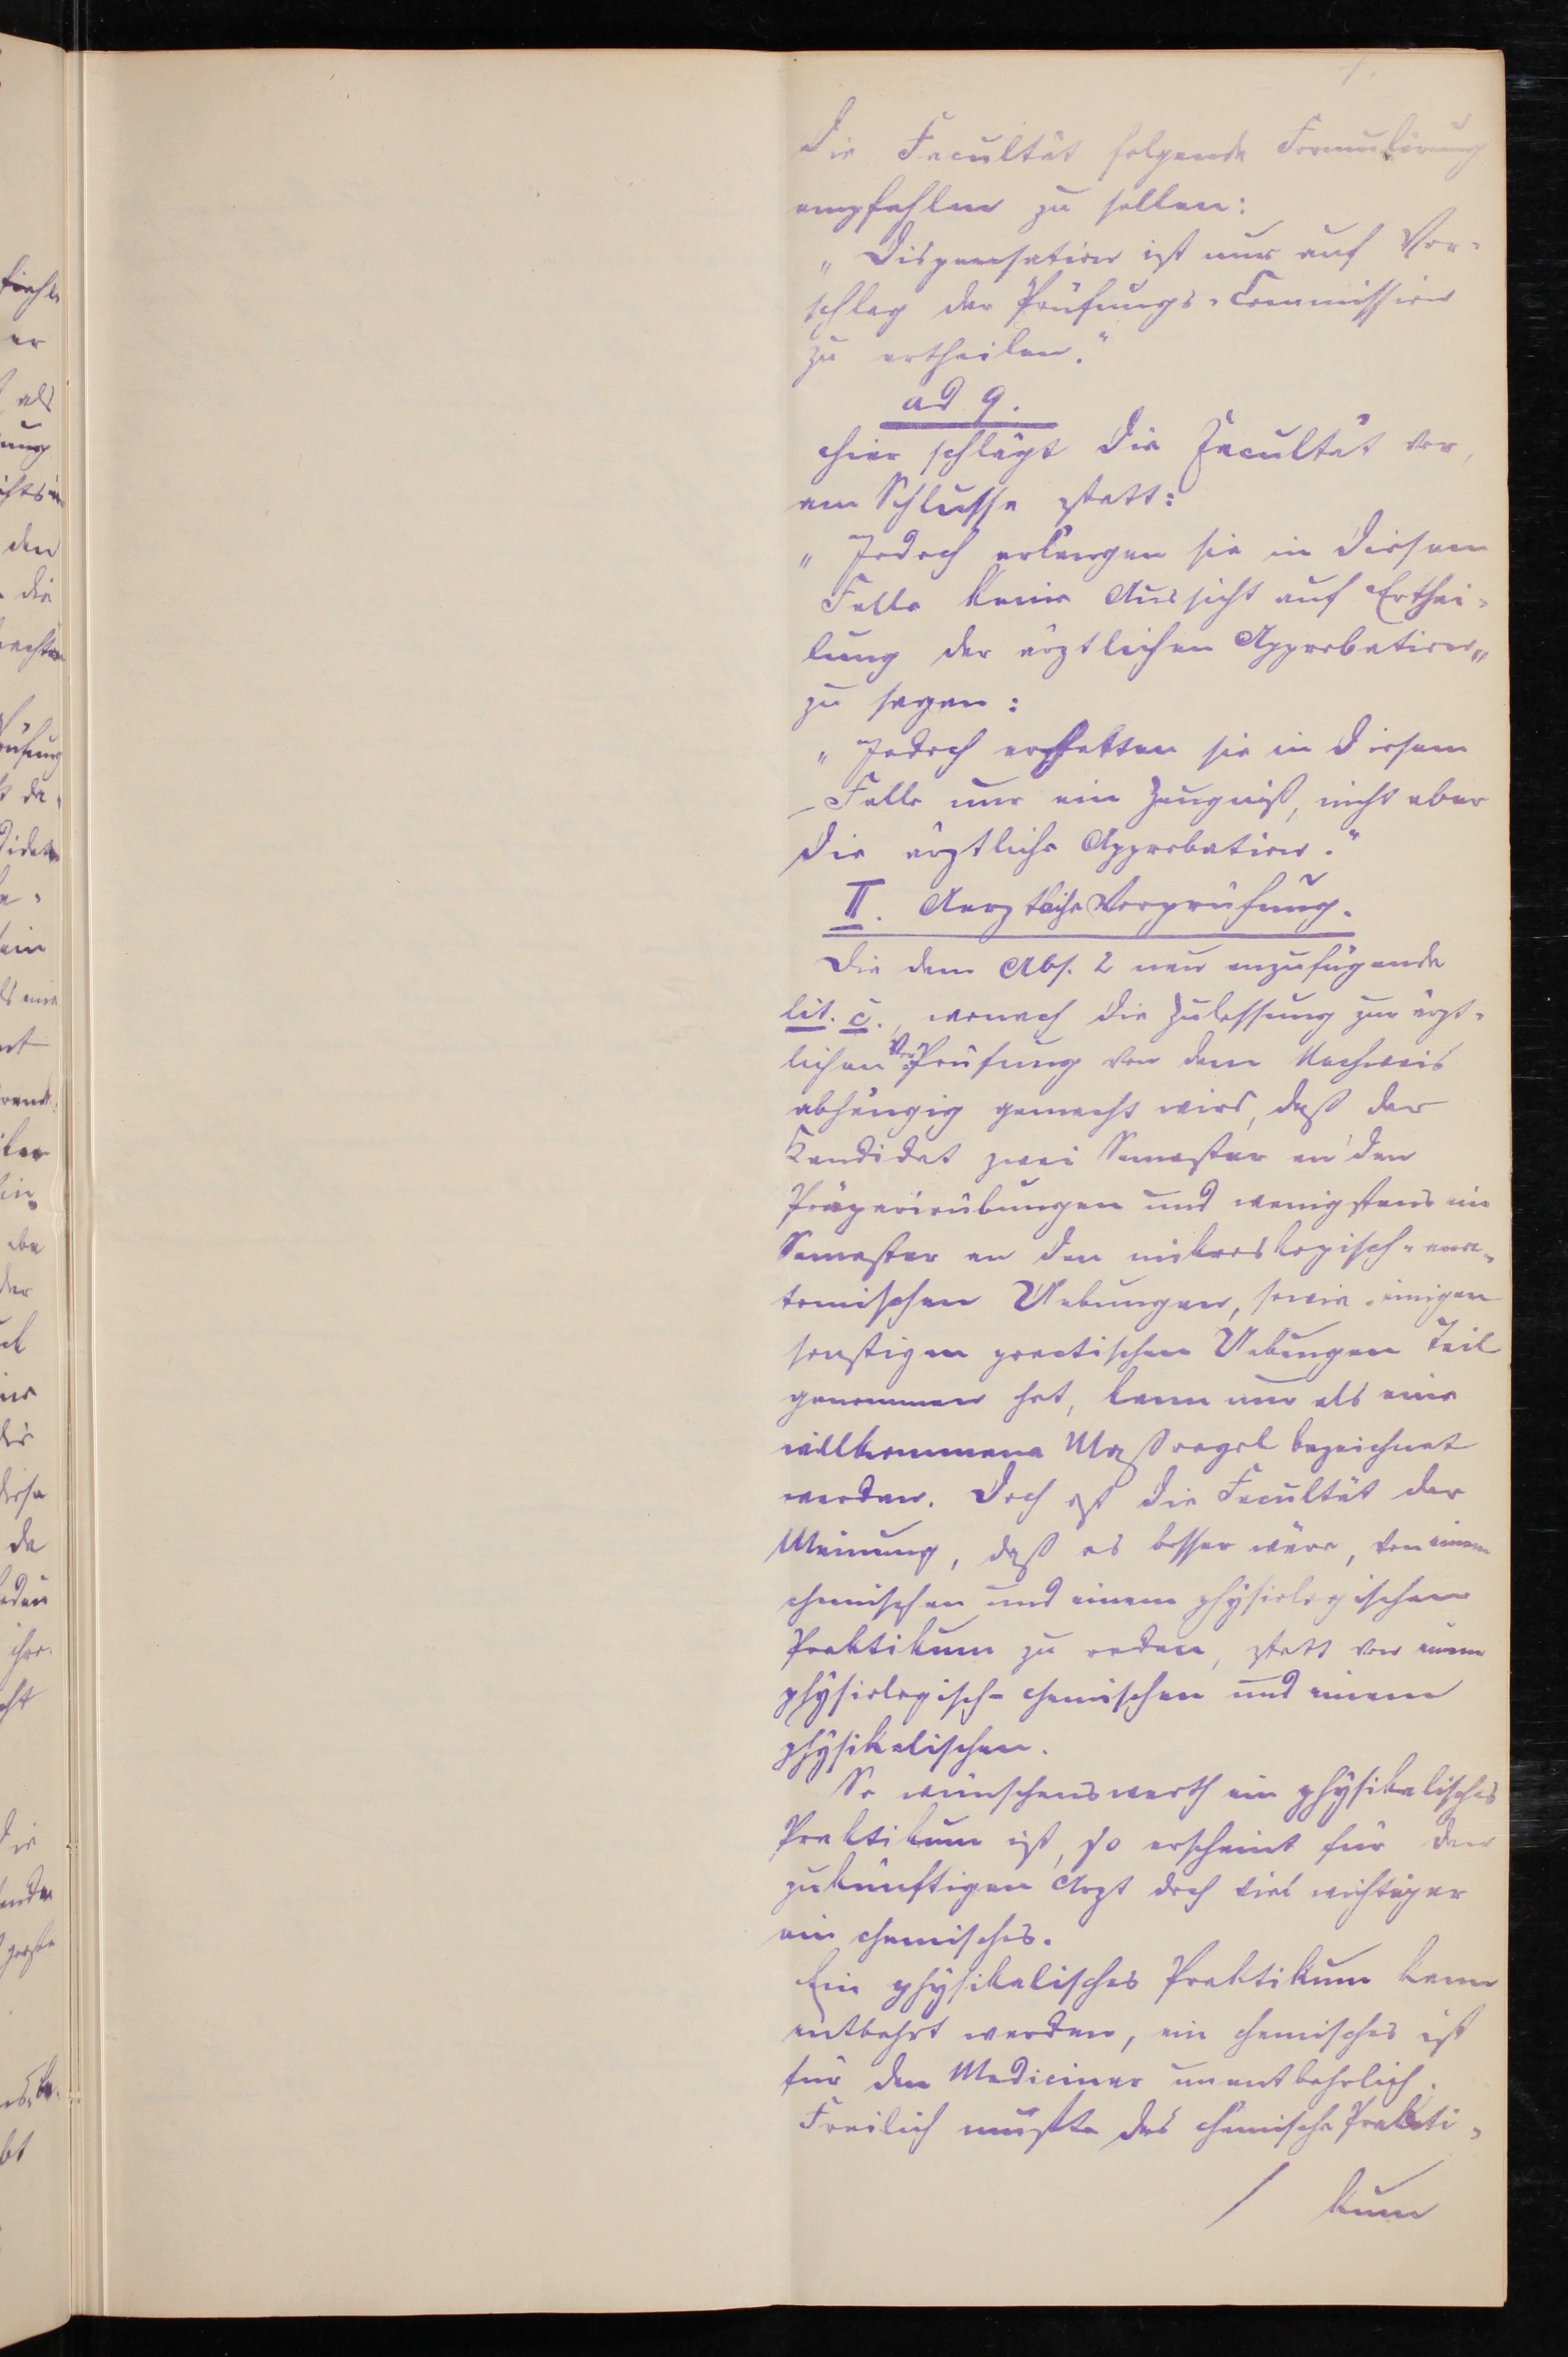 die Facultät folgende Formulirung
empfehlen zu sollen:
„Dispensation ist nur auf Vor-
schlag der Prüfungs-Commission
zu ertheilen."
ad 9.
Hier schlägt die Facultät vor,
am Schlusse statt:
„Jedoch erlangen sie in diesem
Falle keine Aussicht auf Erthei-
lung der ärztlichen Approbation„
zu sagen:
„Jedoch erhalten sie in diesem
Falle nur ein Zeugniß, nicht aber
die ärztliche Approbation."
II. Aerztliche Vorprüfung.
Die dem Abs. 2 neu anzufügende
lit. c., wonach die Zulassung zur ärzt-
lichen Vor-Prüfung von dem Nachweis
abhängig gemacht wird, daß der
Kandidat zwei Semester an den
Präparirübungen und wenigstens ein
Semester an den mikroskopisch-ana-
tomischen Uebungen, sowie einigen
sonstigen practischen Uebungen Teil
genommen hat, kann nur als eine
willkommene Maßregel bezeichnet
werden. Doch ist die Facultät der
Meinung, daß es besser wäre, von einem
chemischen und einem physiologischen
Praktikum zu reden, statt von einem
physiologisch-chemischen und einem
physikalischen.
So wünschenswerth ein physikalisches
Praktikum ist, so erscheint für den
zukünftigen Arzt doch viel wichtiger
ein chemisches.
Ein physikalisches Praktikum kann
entbehrt werden, ein chemisches ist
für den Mediciner unentbehrlich.
Freilich müßte das chemische Prakti-
/ kum